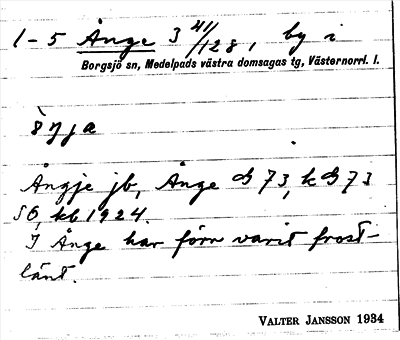 1-5 Ånge 3 41/128, by i
Borgsjö sn, Medelpads västra domsagas tg, Västernorrl. l.
Ångje jb, Ånge GS 73, k GS 73
SO, kb 1924.
I Ånge har förr varit frost-
länt.
VALTER JANSSON 1934